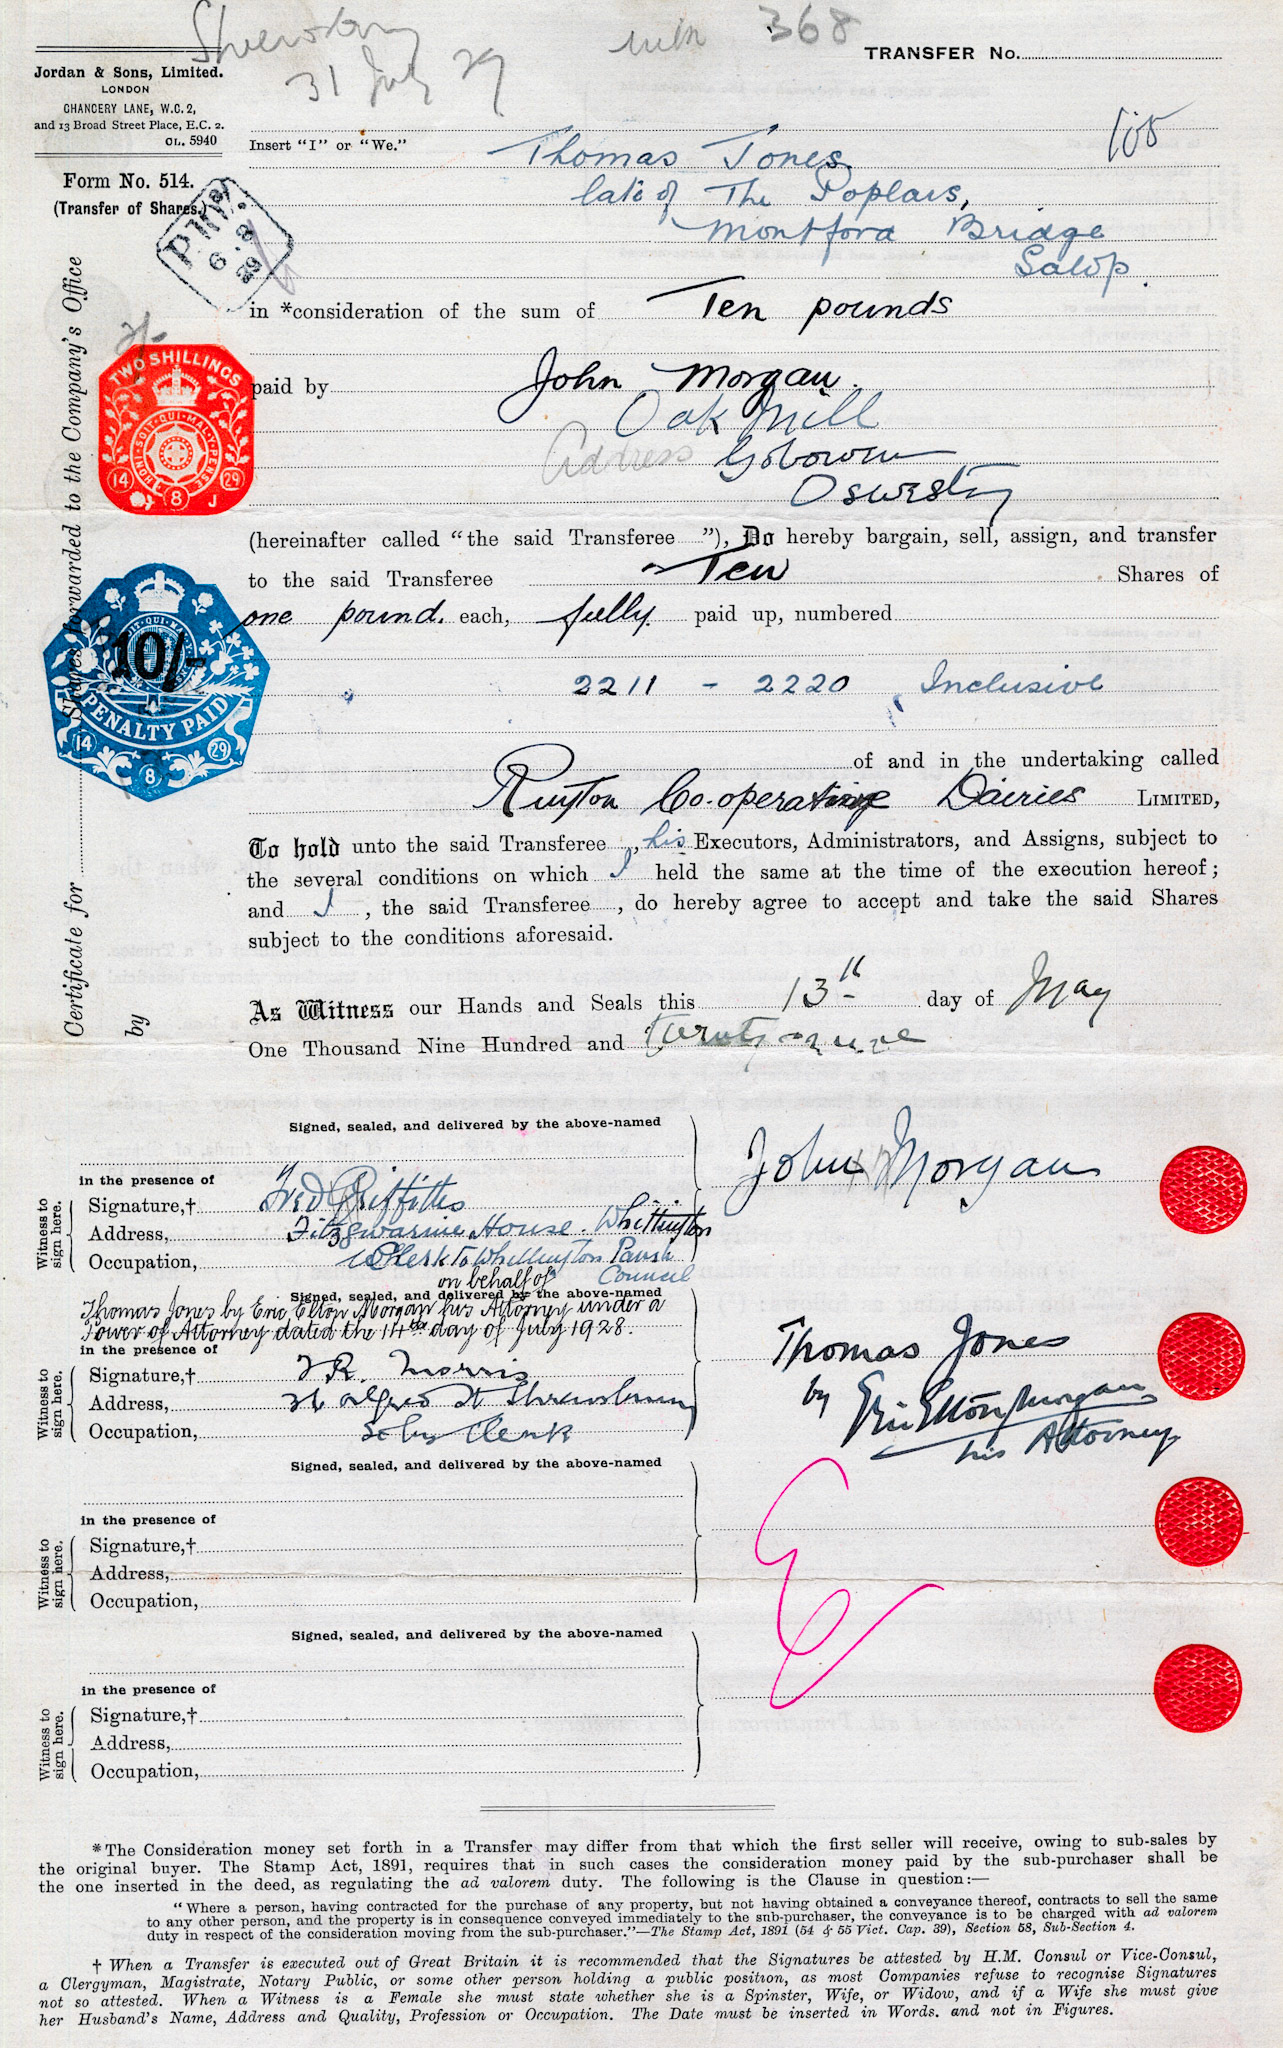 Shrewsbury
31 July 29
368
TRANSFER No.
Jordan & Sons, Limited.
LONDON
CHANCERY LANE, W.C. 2,
and 13 Broad Street Place, E.C. 2.
OL. 5940
Form No. 514.
(Transfer of Shares.)
6 8 29
Insert "I" or "We."
Thomas Jones
late of The Poplars,
Montford Bridge
Salop.
in *consideration of the sum of Ten pounds
2/-
TWO SHILLINGS
HONI·SOIT·QUI·MAL·Y·PENSE
14 8 29 J
paid by John Morgan.
Oak Mill
Address Gobowen
Oswestry
(hereinafter called "the said Transferee "), Do hereby bargain, sell, assign, and transfer
to the said Transferee Ten Shares of
one pound. each, fully paid up, numbered
10/-
PENALTY PAID
14 8 29
2211 - 2220 Inclusive
of and in the undertaking called
Ruyton Co-operative Dairies LIMITED,
To hold unto the said Transferee , his Executors, Administrators, and Assigns, subject to
the several conditions on which I held the same at the time of the execution hereof;
and I , the said Transferee , do hereby agree to accept and take the said Shares
subject to the conditions aforesaid.
As Witness our Hands and Seals this 13th day of May
One Thousand Nine Hundred and twenty nine
Certificate for Shares forwarded to the Company's Office
by
Signed, sealed, and delivered by the above-named
John Morgan
in the presence of
Witness to sign here.
Signature,† Fred Griffiths
Address, Fitzgwarine House. Whittington
Occupation, Clerk to Whittington Parish
Council
on behalf of
Signed, sealed, and delivered by the above-named
Thomas Jones by Eric Elton Morgan his Attorney under a
Power of Attorney dated the 14th day of July 1928.
Thomas Jones
by Eric Elton Morgan
his Attorney
in the presence of
Witness to sign here.
Signature,† R. Morris
Address, Alfred St Shrewsbury
Occupation, Clerk
Signed, sealed, and delivered by the above-named
in the presence of
Witness to sign here.
Signature,†
Address,
Occupation,
Signed, sealed, and delivered by the above-named
in the presence of
Witness to sign here.
Signature,†
Address,
Occupation,
*The Consideration money set forth in a Transfer may differ from that which the first seller will receive, owing to sub-sales by
the original buyer. The Stamp Act, 1891, requires that in such cases the consideration money paid by the sub-purchaser shall be
the one inserted in the deed, as regulating the ad valorem duty. The following is the Clause in question:—
"Where a person, having contracted for the purchase of any property, but not having obtained a conveyance thereof, contracts to sell the same
to any other person, and the property is in consequence conveyed immediately to the sub-purchaser, the conveyance is to be charged with ad valorem
duty in respect of the consideration moving from the sub-purchaser."—The Stamp Act, 1891 (54 & 55 Vict. Cap. 39), Section 58, Sub-Section 4.
† When a Transfer is executed out of Great Britain it is recommended that the Signatures be attested by H.M. Consul or Vice-Consul,
a Clergyman, Magistrate, Notary Public, or some other person holding a public position, as most Companies refuse to recognise Signatures
not so attested. When a Witness is a Female she must state whether she is a Spinster, Wife, or Widow, and if a Wife she must give
her Husband's Name, Address and Quality, Profession or Occupation. The Date must be inserted in Words. and not in Figures.